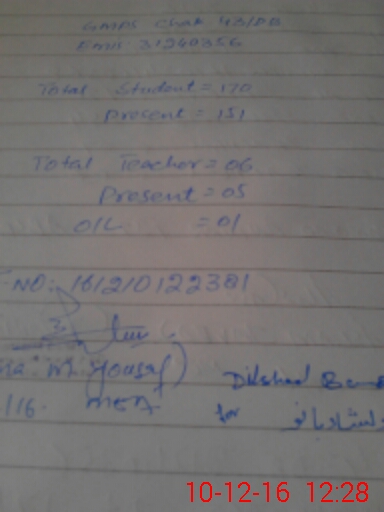 GMPS Chak 43/DB
Emis: 31240356
Total Student = 170
Present = 151
Total Teacher = 06
Present = 05
O/L = 01
NO: 16/210122381
M. Yousaf)
Dilshad
/16. MEA for دلشاد بانو
10-12-16 12:28